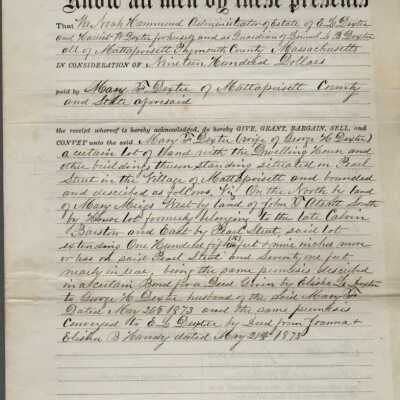 Know all men by these presents
That We Noah Hammond Administrator of Estate of E. L. Dexter
and Harriet W. Dexter for herself and as Guardian of Daniel L. B. Dexter
all of Mattapoisett Plymouth County Massachusetts
IN CONSIDERATION OF Nineteen Hundred Dollars
paid by Mary F Dexter of Mattapoisett County
and State aforesaid
the receipt whereof is hereby acknowledged, do hereby GIVE, GRANT, BARGAIN, SELL, and
CONVEY unto the said Mary F Dexter (wife of George H Dexter)
a certain lot of land with the Dwelling House and
other buildings thereon standing situated in Pearl
Street in the Village of Mattapoisett and bounded
and described as follows, viz On the North by land
of Mary Meigs West by land of John Atsatt South
by House lot formerly belonging to the late Calvin
Barstow and East by Pearl Street, said lot
extending One Hundred feet & nine inches more
or less on said Pearl Street and Seventy one feet
nearly in rear, being the same premises described
in a certain Bond for a Deed Given by Elisha L. Dexter
to George H. Dexter husband of the said Mary F.
Dated May 26th 1873 and the same premises
Conveyed to E L Dexter by Deed from Joanna &
Elisha B Handy dated May 21st 1873